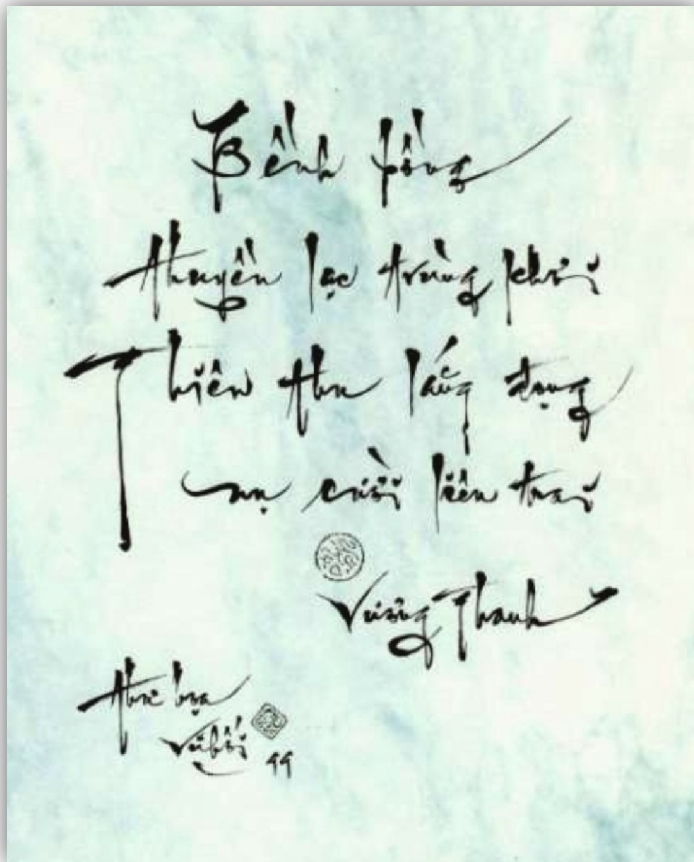 Bềnh bồng
thuyền lạc trùng khơi
Thiên thu lắng đọng
nụ cười liêu trai
Vương Thanh
Thư họa
Vũ Hối 99